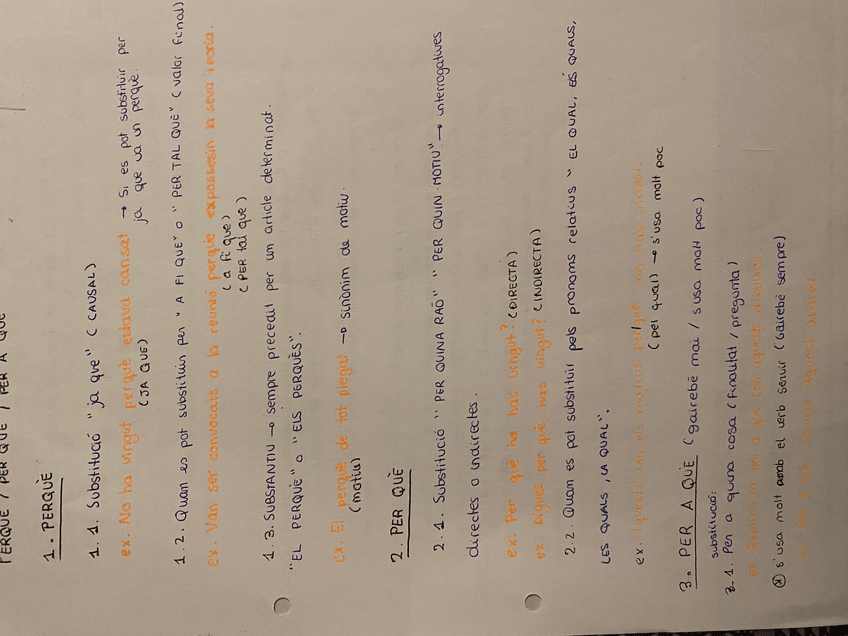 PERQUÈ / PER QUÈ / PER A QUÈ
1. PERQUÈ
1.1. Substitució "ja que" (CAUSAL)
ex. No ha vingut perquè estava cansat → Si es pot substituir per
(JA QUE) ja que va un perquè.
1.2. Quan es pot substituir per "A FI QUE" o "PER TAL QUÈ" (valor final)
ex. Van ser convocats a la reunió perquè exposessin la seva teoria.
(a fi que)
(PER tal que)
1.3. SUBSTANTIU → sempre precedit per un article determinat.
"EL PERQUÈ" o "ELS PERQUÈS".
Ex. El perquè de tot plegat → sinònim de motiu.
(motiu)
2. PER QUÈ
2.1. Substitució "PER QUINA RAÓ" "PER QUIN MOTIU" → interrogatives
directes o indirectes.
ex. Per què ha has vingut? (DIRECTA)
ex. Digues per què has vingut? (INDIRECTA)
2.2. Quan es pot substituir pels pronoms relatius "EL QUAL, ELS QUALS,
LES QUALS, LA QUAL".
ex. els motius per què no has vingut.
(pel qual) → s'usa molt poc
3. PER A QUÈ (gairebé mai / s'usa molt poc)
substitució:
3.1. Per a quina cosa (Finalitat / pregunta)
ex. Explica'm per a què són aquests
⊗ s'usa molt amb el verb servir (Gairebé sempre)
ex. Per a què serveix aquest